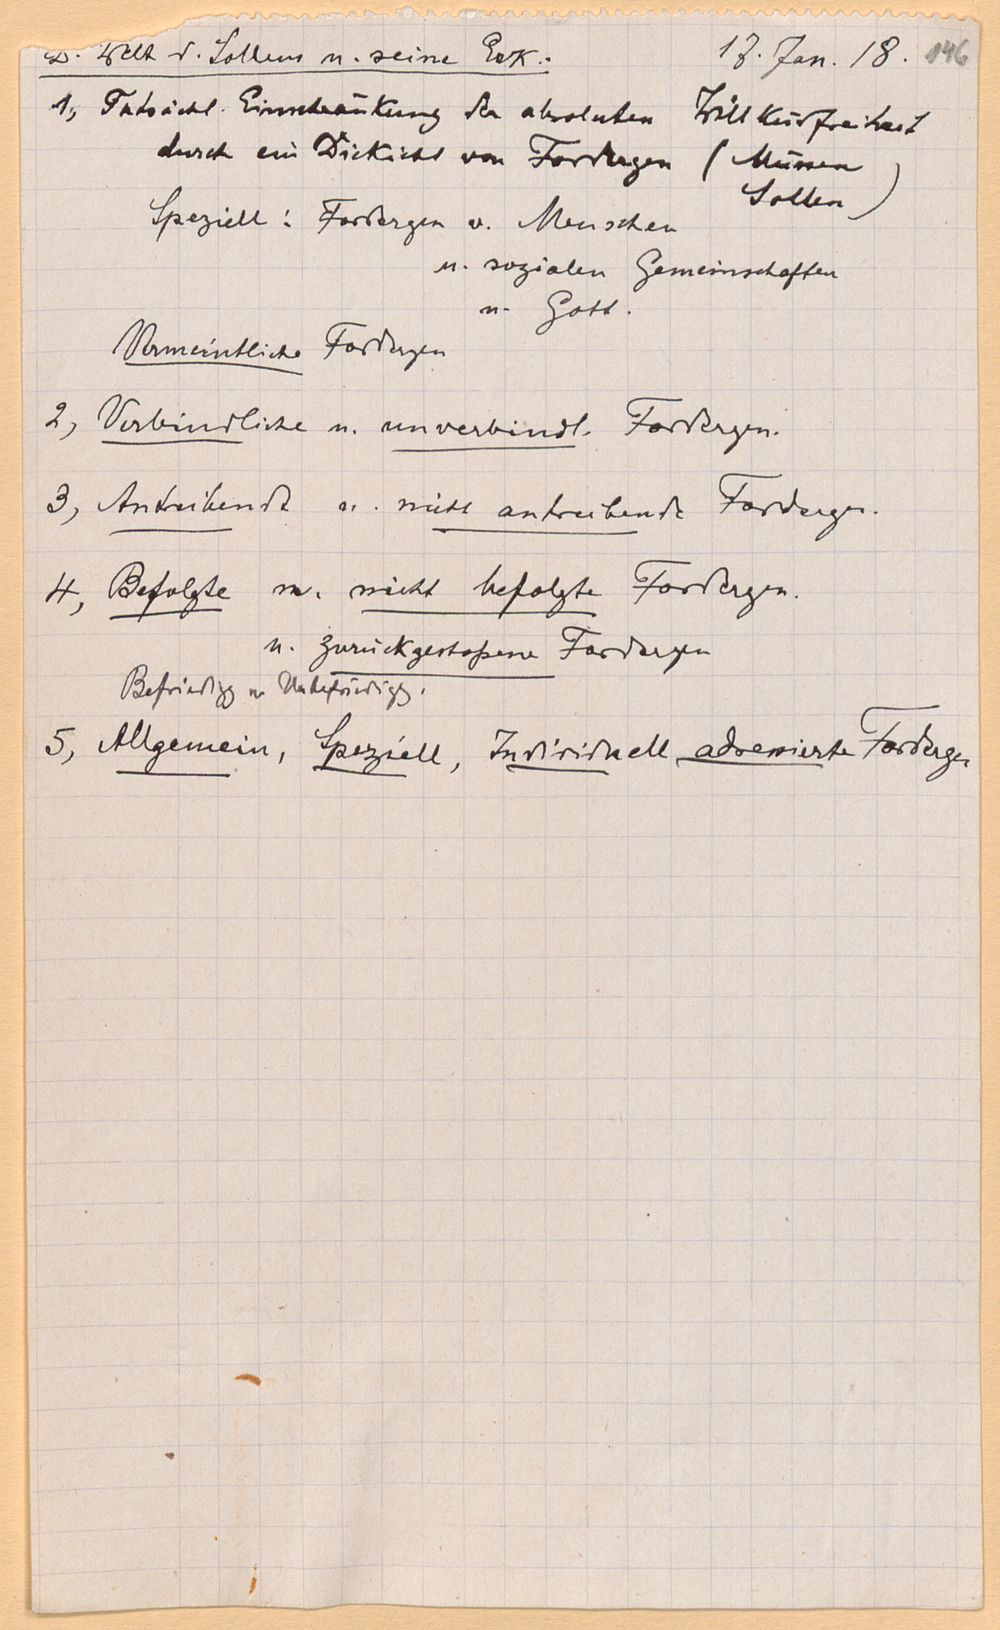 D. Welt d. Sollens u. seine Erk.: 17. Jan. 18. 146
1, Tatsächl. Einschränkung der absoluten Willkürfreiheit
durch ein Dickicht von Fordergen (Müssen
Sollen)
Speziell: Fordergen v. Menschen
u. sozialen Gemeinschaften
u. Gott.
Vermeintliche Fordergen
2, Verbindliche u. unverbindl. Fordergen.
3, Antreibende u. nicht antreibende Fordergen.
4, Befolgte u. nicht befolgte Fordergen.
u. zurückgestoßene Fordergen
Befriedigg u Unbefriedigg.
5, Allgemein, Speziell, Individuell adressierte Fordergen